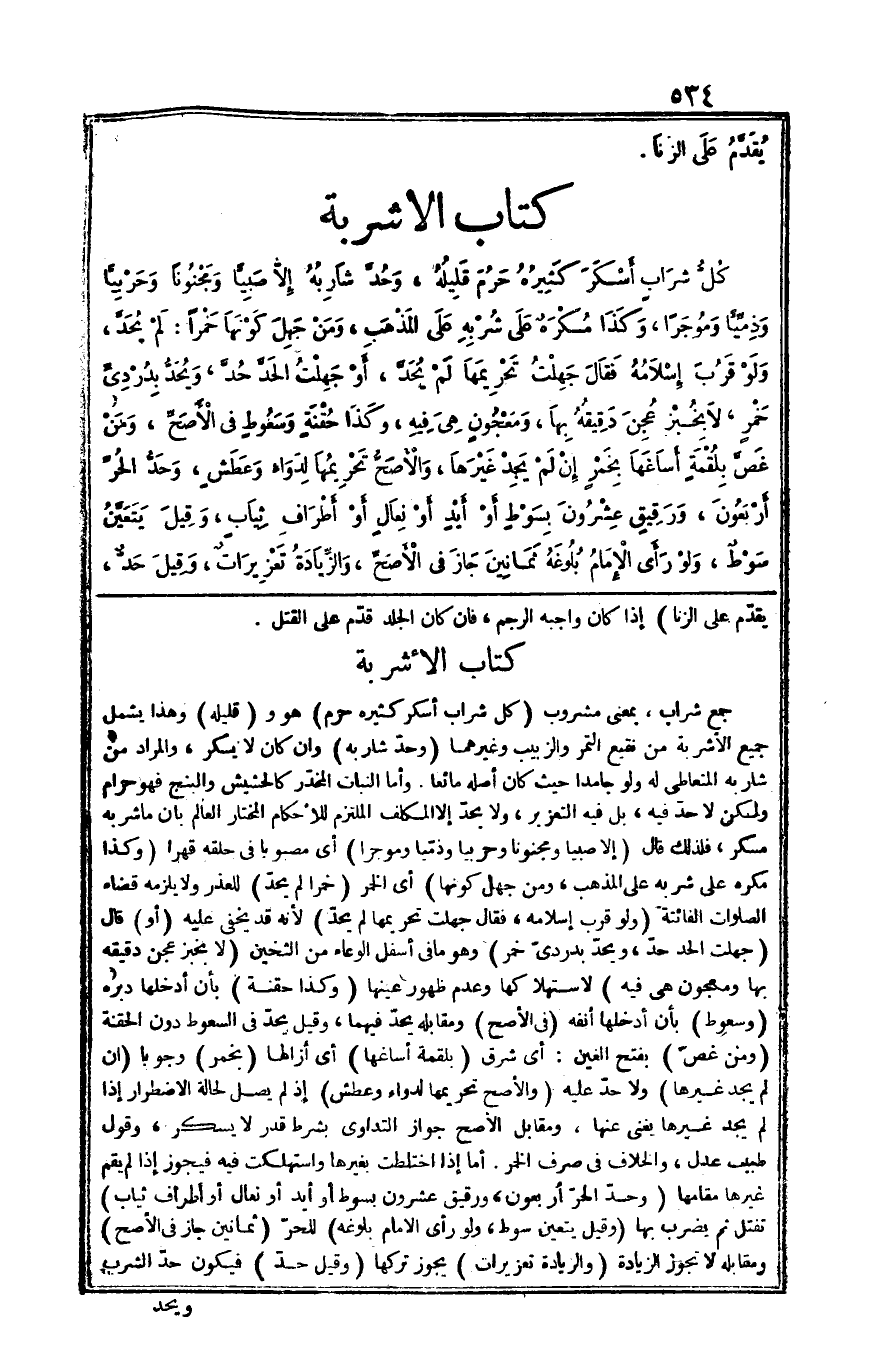 ٥٣٤
يُقَدَّمُ عَلَى الزِّنَا .
كتاب الاشربة
كُلُّ شَرَابٍ أَسْكَرَ كَثِيرُهُ حَرُمَ قَلِيلُهُ ، وَحُدَّ شَارِبُهُ إِلاَّ صَبِيًّا وَمَجْنُونًا وَحَرْبِيًّا
وَذِمِّيًّا وَمُوجَرًا ، وَكَذَا مُكْرَهٌ عَلَى شُرْبِهِ عَلَى المَذْهَبِ ، وَمَنْ جَهِلَ كَوْنَهَا خَمْراً : لَمْ يُحَدَّ ،
وَلَوْ قَرُبَ إِسْلاَمُهُ فَقَالَ جَهِلْتُ تَحْرِيمَهَا لَمْ يُحَدَّ ، أَوْ جَهِلْتُ الحَدَّ حُدَّ ، وَيُحَدُّ بِدُرْدِىِّ
خَمْرٍ ، لاَبِخُبْزٍ عُجِنَ دَقِيقُهُ بِهَا ، وَمَعْجُونٍ هِىَ فِيهِ ، وَكَذَا حُقْنَةٍ وَسَعُوطٍ فِى الْأَصَحِّ ، وَمَنْ
غَصَّ بِلُقْمَةٍ أَسَاغَهَا بِخَمْرٍ إِنْ لَمْ يَجِدْ غَيْرَهَا ، وَالْأَصَحُّ تَحْرِيمُهَا لِدَوَاءٍ وَعَطَشٍ ، وَحَدُّ الحُرِّ
أَرْبَعُونَ ، وَرَقِيقٍ عِشْرُونَ بِسَوْطٍ أَوْ أَيْدٍ أَوْ نِعَالٍ أَوْ أَطْرَافِ ثِيَابٍ ، وَقِيلَ يَتَعَيَّنُ
سَوْطٌ ، وَلَوْ رَأَى الْإِمَامُ بُلُوغَهُ ثَمَانِينَ جَازَ فِى الْأَصَحِّ ، وَالزِّيَادَةُ تَعْزِيرَاتٌ ، وَقِيلَ حَدٌّ ،
يقدّم على الزنا ) إذا كان واجبه الرجم ، فان كان الجلد قدّم على القتل .
كتاب الأشربة
جمع شراب ، بمعنى مشروب ( كل شراب أسكر كثيره حرم ) هو و ( قليله ) وهذا يشمل
جميع الأشربة من نقيع التمر والزبيب وغيرهما ( وحدّ شاربه ) وان كان لا يسكر ، والمراد من
شاربه المتعاطى له ولو جامدا حيث كان أصله مائعا . وأما النبات المخدّر كالحشيش والبنج فهو حرام
ولكن لا حدّ فيه ، بل فيه التعزير ، ولا يحدّ إلا المكلف الملتزم للأحكام المختار العالم بان ماشربه
مسكر ، فلذلك قال ( إلا صبيا ومجنونا وحربيا وذمّيا وموجرا ) أى مصبوبا فى حلقه قهرا ( وكذا
مكره على شربه على المذهب ، ومن جهل كونها ) أى الخمر ( خمرا لم يحدّ ) للعذر ولا يلزمه قضاء
الصلوات الفائتة ( ولو قرب إسلامه ، فقال جهلت تحريمها لم يحدّ ) لأنه قد يخفى عليه ( أو ) قال
( جهلت الحد حدّ ، ويحدّ بدردىّ خمر ) وهو مافى أسفل الوعاء من الثخين ( لا بخبز عجن دقيقه
بها ومعجون هى فيه ) لاستهلاكها وعدم ظهور عينها ( وكذا حقنة ) بأن أدخلها دبره
( وسعوط ) بأن أدخلها أنفه ( فى الأصح ) ومقابله يحدّ فيهما ، وقيل يحدّ فى السعوط دون الحقنة
( ومن غصّ ) بفتح الغين : أى شرق ( بلقمة أساغها ) أى أزالها ( بخمر ) وجوبا ( ان
لم يجد غيرها ) ولا حدّ عليه ( والأصح تحريمها لدواء وعطش ) إذ لم يصل لحالة الاضطرار إذا
لم يجد غيرها يغنى عنها ، ومقابل الأصح جواز التداوى بشرط قدر لا يسكر ، وقول
طبيب عدل ، والخلاف فى صرف الخمر . أما إذا اختلطت بغيرها واستهلكت فيه فيجوز إذا لم يقم
غيرها مقامها ( وحدّ الحرّ أربعون ، ورقيق عشرون بسوط أو أيد أو نعال أو أطراف ثياب )
تفتل ثم يضرب بها ( وقيل يتعين سوط ، ولو رأى الامام بلوغه ) للحرّ ( ثمانين جاز فى الأصح )
ومقابله لا تجوز الزيادة ( والزيادة تعزيرات ) يجوز تركها ( وقيل حدّ ) فيكون حدّ الشرب
ويحد